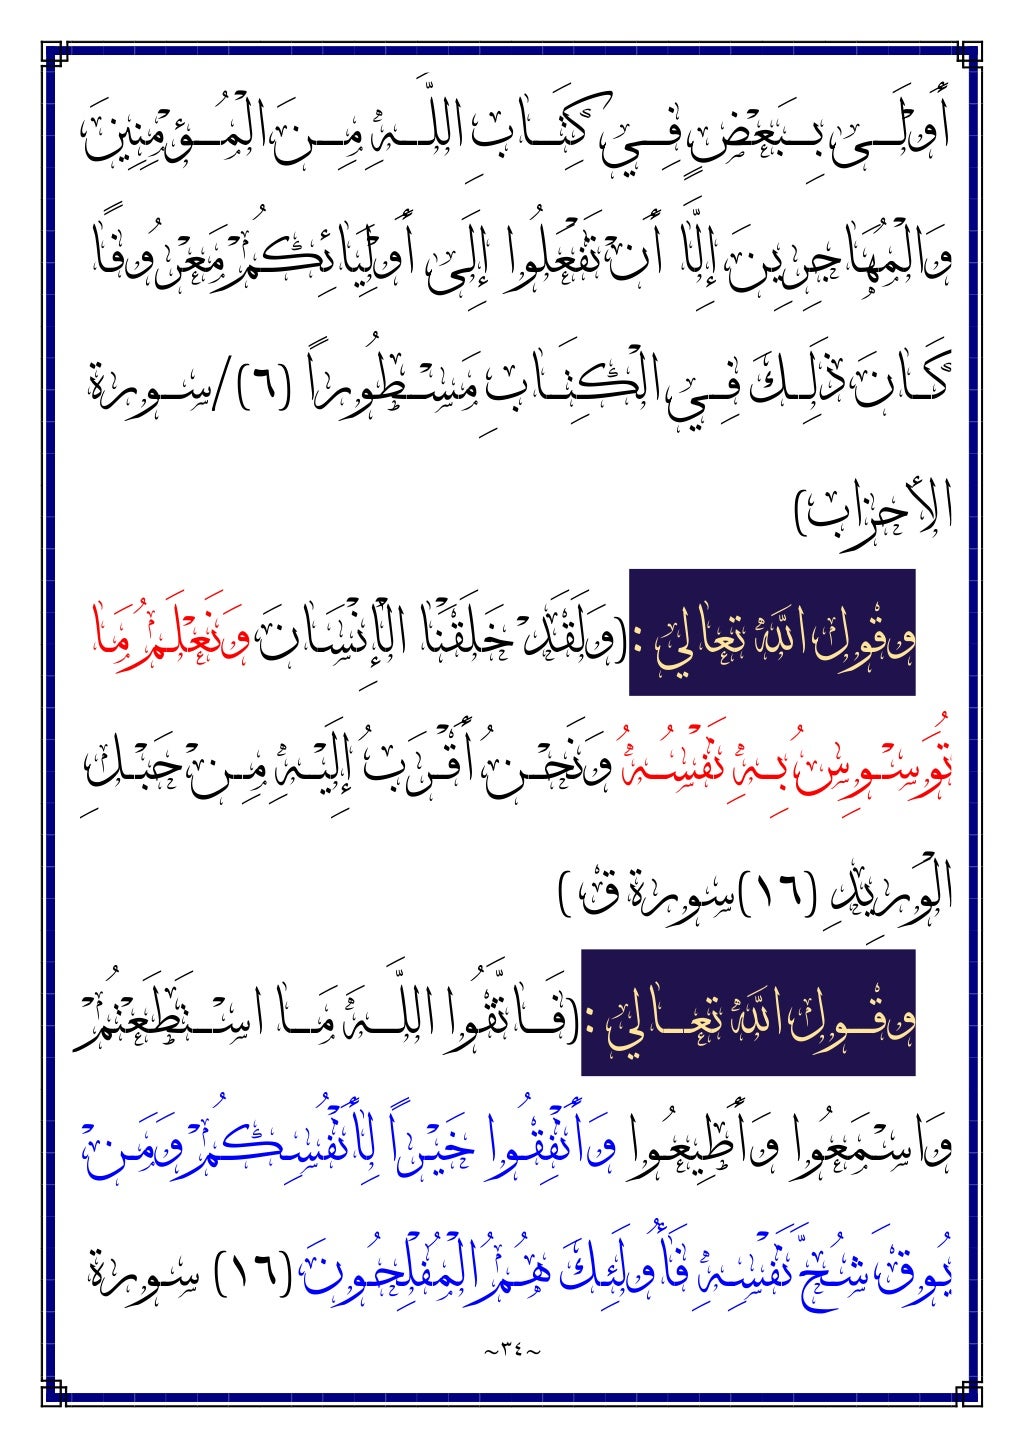 أَوْلَـــى بِـــبَعْضٍ فِـــي كِتَـــابِ اللَّـــهِ مِـــنَ الْمُـــؤْمِنِينَ
وَالْمُهَاجِرِينَ إِلَّا أَنْ تَفْعَلُوا إِلَى أَوْلِيَائِكُمْ مَعْرُوفًا
كَـانَ ذَلِـكَ فِـي الْكِتَـابِ مَسْـطُوراً (٦)/سـورة
الأحزاب)
وقول الله تعالي :(وَلَقَدْ خَلَقْنَا الْإِنْسَانَ وَنَعْلَمُ مَا
تُوَسْـوِسُ بِـهِ نَفْسُـهُ وَنَحْـنُ أَقْـرَبُ إِلَيْـهِ مِـنْ حَبْـلِ
الْوَرِيدِ (١٦)سورة ق )
وقـــول الله تعـــالي :(فَـــاتَّقُوا اللَّـــهَ مَـــا اسْـــتَطَعْتُمْ
وَاسْـمَعُوا وَأَطِيعُـوا وَأَنْفِقُـوا خَيْـراً لِأَنْفُسِـكُمْ وَمَـنْ
يُـوقَ شُـحَّ نَفْسِـهِ فَأُولَئِـكَ هُـمُ الْمُفْلِحُـونَ (١٦) سـورة
~٣٤~